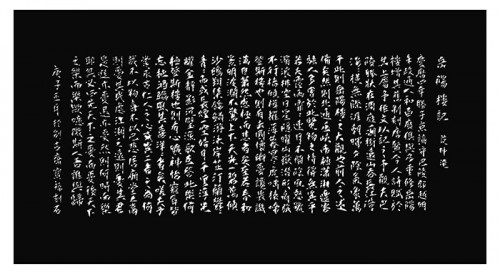 岳陽樓記 范仲淹
慶曆四年春滕子京謫守巴陵郡越明
年政通人和百廢具興乃重修岳陽
樓增其舊制刻唐賢今人詩賦於
其上屬予作文以記之予觀夫巴
陵勝狀在洞庭一湖銜遠山吞長江浩
浩湯湯橫無際涯朝暉夕陰氣象萬
千此則岳陽樓之大觀也前人之述
備矣然則北通巫峽南極瀟湘遷客
騷人多會於此覽物之情得無異乎
若夫霪雨霏霏連月不開陰風怒號
濁浪排空日星隱曜山岳潛形商旅
不行檣傾楫摧薄暮冥冥虎嘯猿啼
登斯樓也則有去國懷鄉憂讒畏譏
滿目蕭然感極而悲者矣至若春和
景明波瀾不驚上下天光一碧萬頃
沙鷗翔集錦鱗游泳岸芷汀蘭郁郁
青青而或長煙一空皓月千里浮光
耀金靜影沉璧漁歌互答此樂何
極登斯樓也則有心曠神怡寵辱皆
忘把酒臨風其喜洋洋者矣嗟夫予
嘗求古仁人之心或異二者之為何
哉不以物喜不以己悲居廟堂之高
則憂其民處江湖之遠則憂其君
是進亦憂退亦憂然則何時而樂
耶其必曰先天下之憂而憂後天下
之樂而樂歟噫微斯人吾誰與歸
庚子